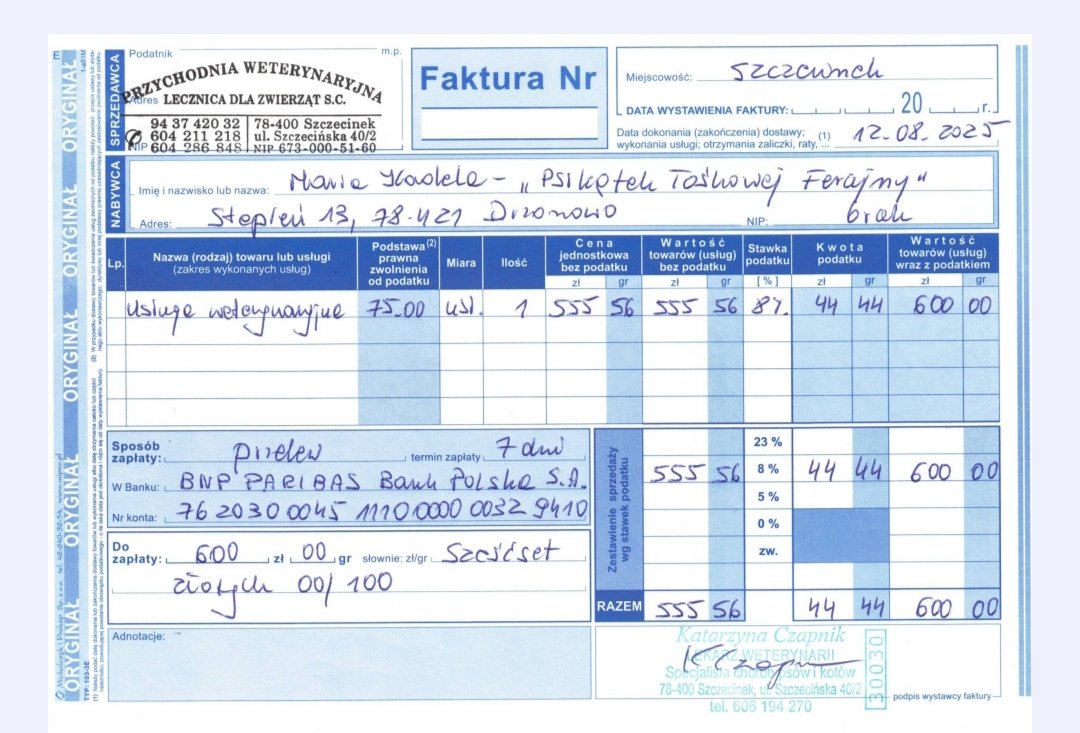 E
ORYGINAŁ ORYGINAŁ ORYGINAŁ ORYGINAŁ ORYGINAŁ ORYGINAŁ
TYP: 103-3E
SPRZEDAWCA
Podatnik
m.p.
PRZYCHODNIA WETERYNARYJNA
Adres
LECZNICA DLA ZWIERZĄT S.C.
94 37 420 32 78-400 Szczecinek
604 211 218 ul. Szczecińska 40/2
NIP
604 286 848 NIP 673-000-51-60
Faktura Nr
Miejscowość:
DATA WYSTAWIENIA FAKTURY: 20 r.
Data dokonania (zakończenia) dostawy; (1) 12.08.2025
wykonania usługi; otrzymania zaliczki, raty, ...
NABYWCA
Imię i nazwisko lub nazwa: Maria - „Psikątek Tośkowej Ferajny"
Adres: Stępień 13, 78-421 Drzonowo NIP: brak
Lp. Nazwa (rodzaj) towaru lub usługi (zakres wykonanych usług) Podstawa (2) prawna zwolnienia od podatku Miara Ilość Cena jednostkowa bez podatku Wartość towarów (usług) bez podatku Stawka podatku Kwota podatku Wartość towarów (usług) wraz z podatkiem
zł gr zł gr [%] zł gr zł gr
Usługa weterynaryjne 75.00 usł. 1 555 56 555 56 8% 44 44 600 00
Sposób zapłaty: przelew termin zapłaty 7 dni
W Banku: BNP PARIBAS Bank Polska S.A.
Nr konta: 76 2030 0045 1110 0000 0032 9410
Do zapłaty: 600 zł 00 gr słownie: zł/gr Sześćset
złotych 00/100
Adnotacje: -
Zestawienie sprzedaży wg stawek podatku
23 %
555 56 8 % 44 44 600 00
5 %
0 %
zw.
RAZEM 555 56 44 44 600 00
Katarzyna Czapnik
LEKARZ WETERYNARII
Specjalista chorób psów i kotów
78-400 Szczecinek, ul. Szczecińska 40/2
tel. 606 194 270
30030
podpis wystawcy faktury